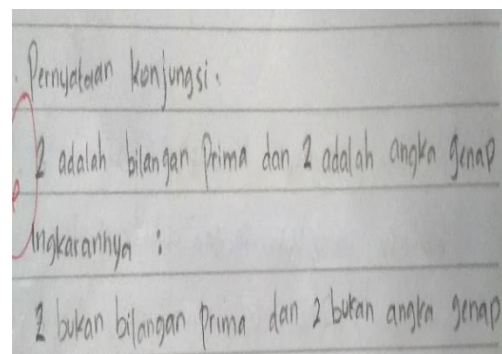 Pernyataan konjungsi.
2 adalah bilangan Prima dan 2 adalah angka genap
Ingkarannya :
2 bukan bilangan Prima dan 2 bukan angka genap